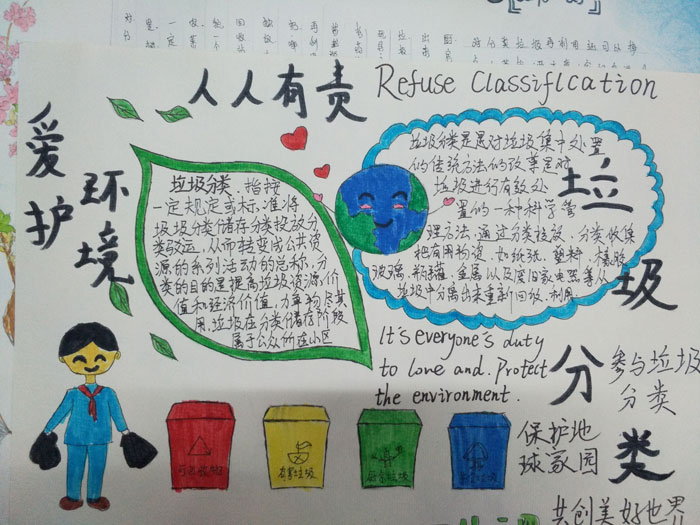 人人有责
Refuse Classification
爱护
环境
垃圾分类,指按
一定规定或标准将
垃圾分类储存分类投放分
类驳运,从而转变成公共资
源的系列活动的总称,分
类的目的是提高垃圾资源,价
值和经济价值,力争物尽其
用.垃圾在分类储存阶段
属于公众的在小区
垃圾分类是是对垃圾集中处置
的传统方法的改善是对
垃圾进行有效处
置的一种科学管
理方法.通过分类投放、分类收集
把有用物资,如纸张、塑料、橡胶
玻璃、瓶罐、金属以及废旧家电器等从
垃圾中分离出来重新回收、利用.
垃圾分类
It's everyone's duty
to love and. Protect
the environment.
参与垃圾
分类
保护地
球家园
共创美好世界